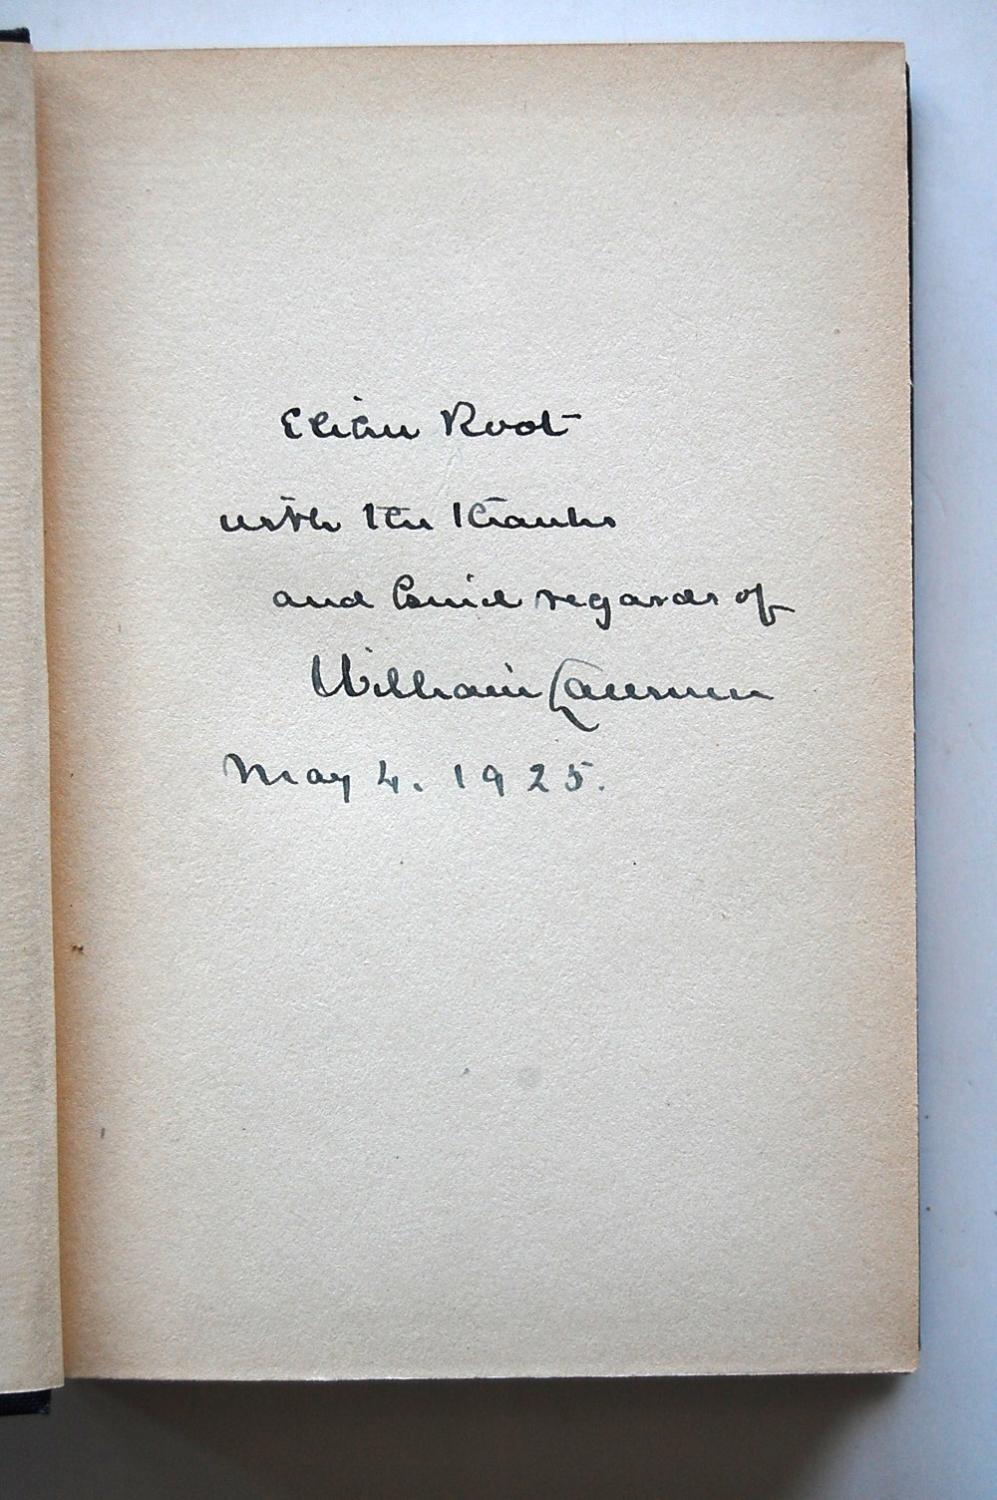 Elihu Root
with the thanks
and kind regards of
William Lawrence
May 4. 1925.